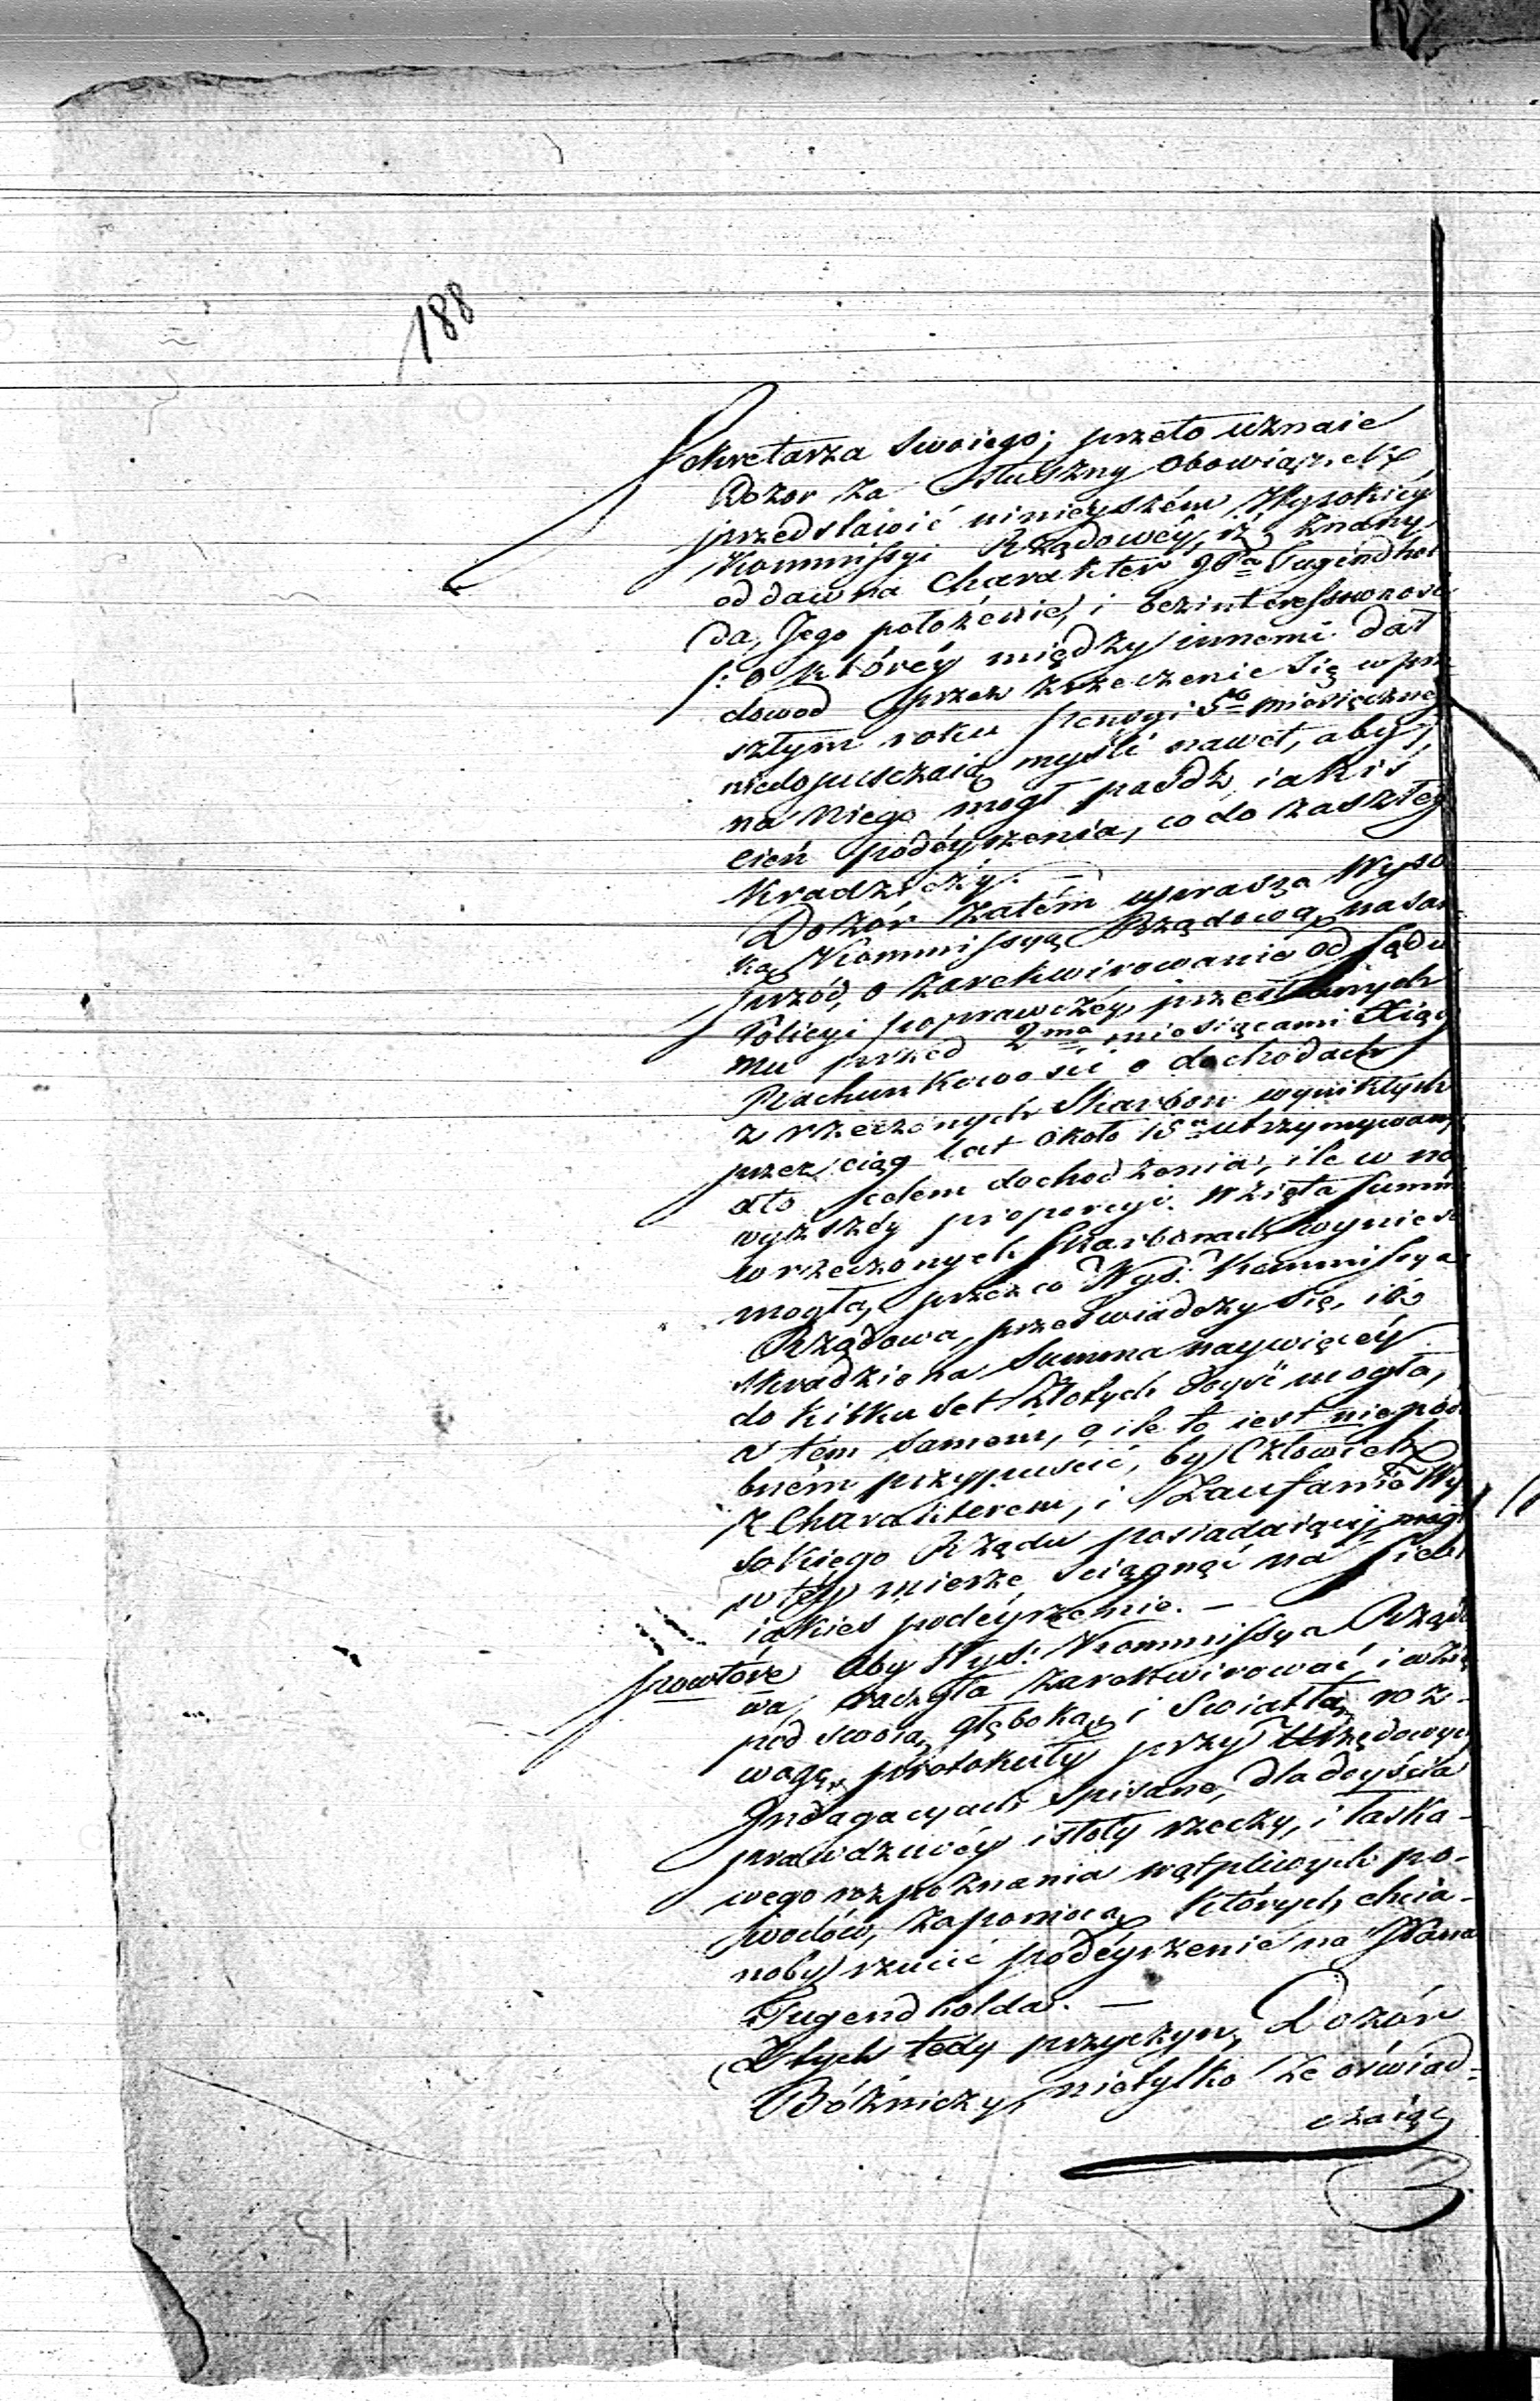 188
Sekretarza swoiego; przeto uznaie
Dozor za słuszny obowiązek
przedstawić ninieyszém Wysokiéy
Kommissyi Rządowéy, iż znany
od dawna Charakter JPa Tugendhol
da, Jego położenie, i bezinteressowność
/: o któréy między innemi dał
dowod przez zrzeczenie się w prze
szłym roku pensyi 5cio miesięczney
niedopuszczaią myśli nawet, aby
na niego mogł paśdź iakiś
cień podéyrzenia, co do zaszłey
kradzieży. —
Dozór zatém uprasza Wyso
ką Kommissyą Rządową, nasam
przód, o zarekwirowanie od Sądu
Policyi poprawczéy, przesłanych
mu przed 2ma miesiącami Xiąg
Rachunkowości o dochodach
z rzeczonych Skarbon wynikłych
przez ciąg lat około 15u utrzymywanych
a to celem dochodzenia, ile w nay
wyższéy proporcyi wzięta summa
w rzeczonych Skarbonach wynieść
mogła, przez co Wys: Kommissya
Rządowa, przeświadczy się, iż
skradziona Summa naywięcéy
do kilku set Złotych bydź mogła,
a tém samem, o ile to iest niepodo
bném przypuścić, by Człowiek
z Charakterem, i Zaufanie Wy
sokiego Rządu posiadaiący mogł
w téy mierze ściągnąć na siebie
iakieś podéyrzenie. —
powtóre aby Wys: Kommissya Rządo
wa, raczyła zarekwirować, i wziąść
pod swoią głęboką i światłą roz-
wagę, protokuły przy Urzędowych
Indagacyach spisane, dla doyścia
prawdziwéy istoty rzeczy, i łaska-
wego rozpoznania wątpliwych po-
wodów, za pomocą których chcia-
noby rzucić podéyrzenie na Pana
Tugendholda. —
Z tych tedy przyczyn, Dozór
Bóżniczy, nietylko że oświad-
czaiąc